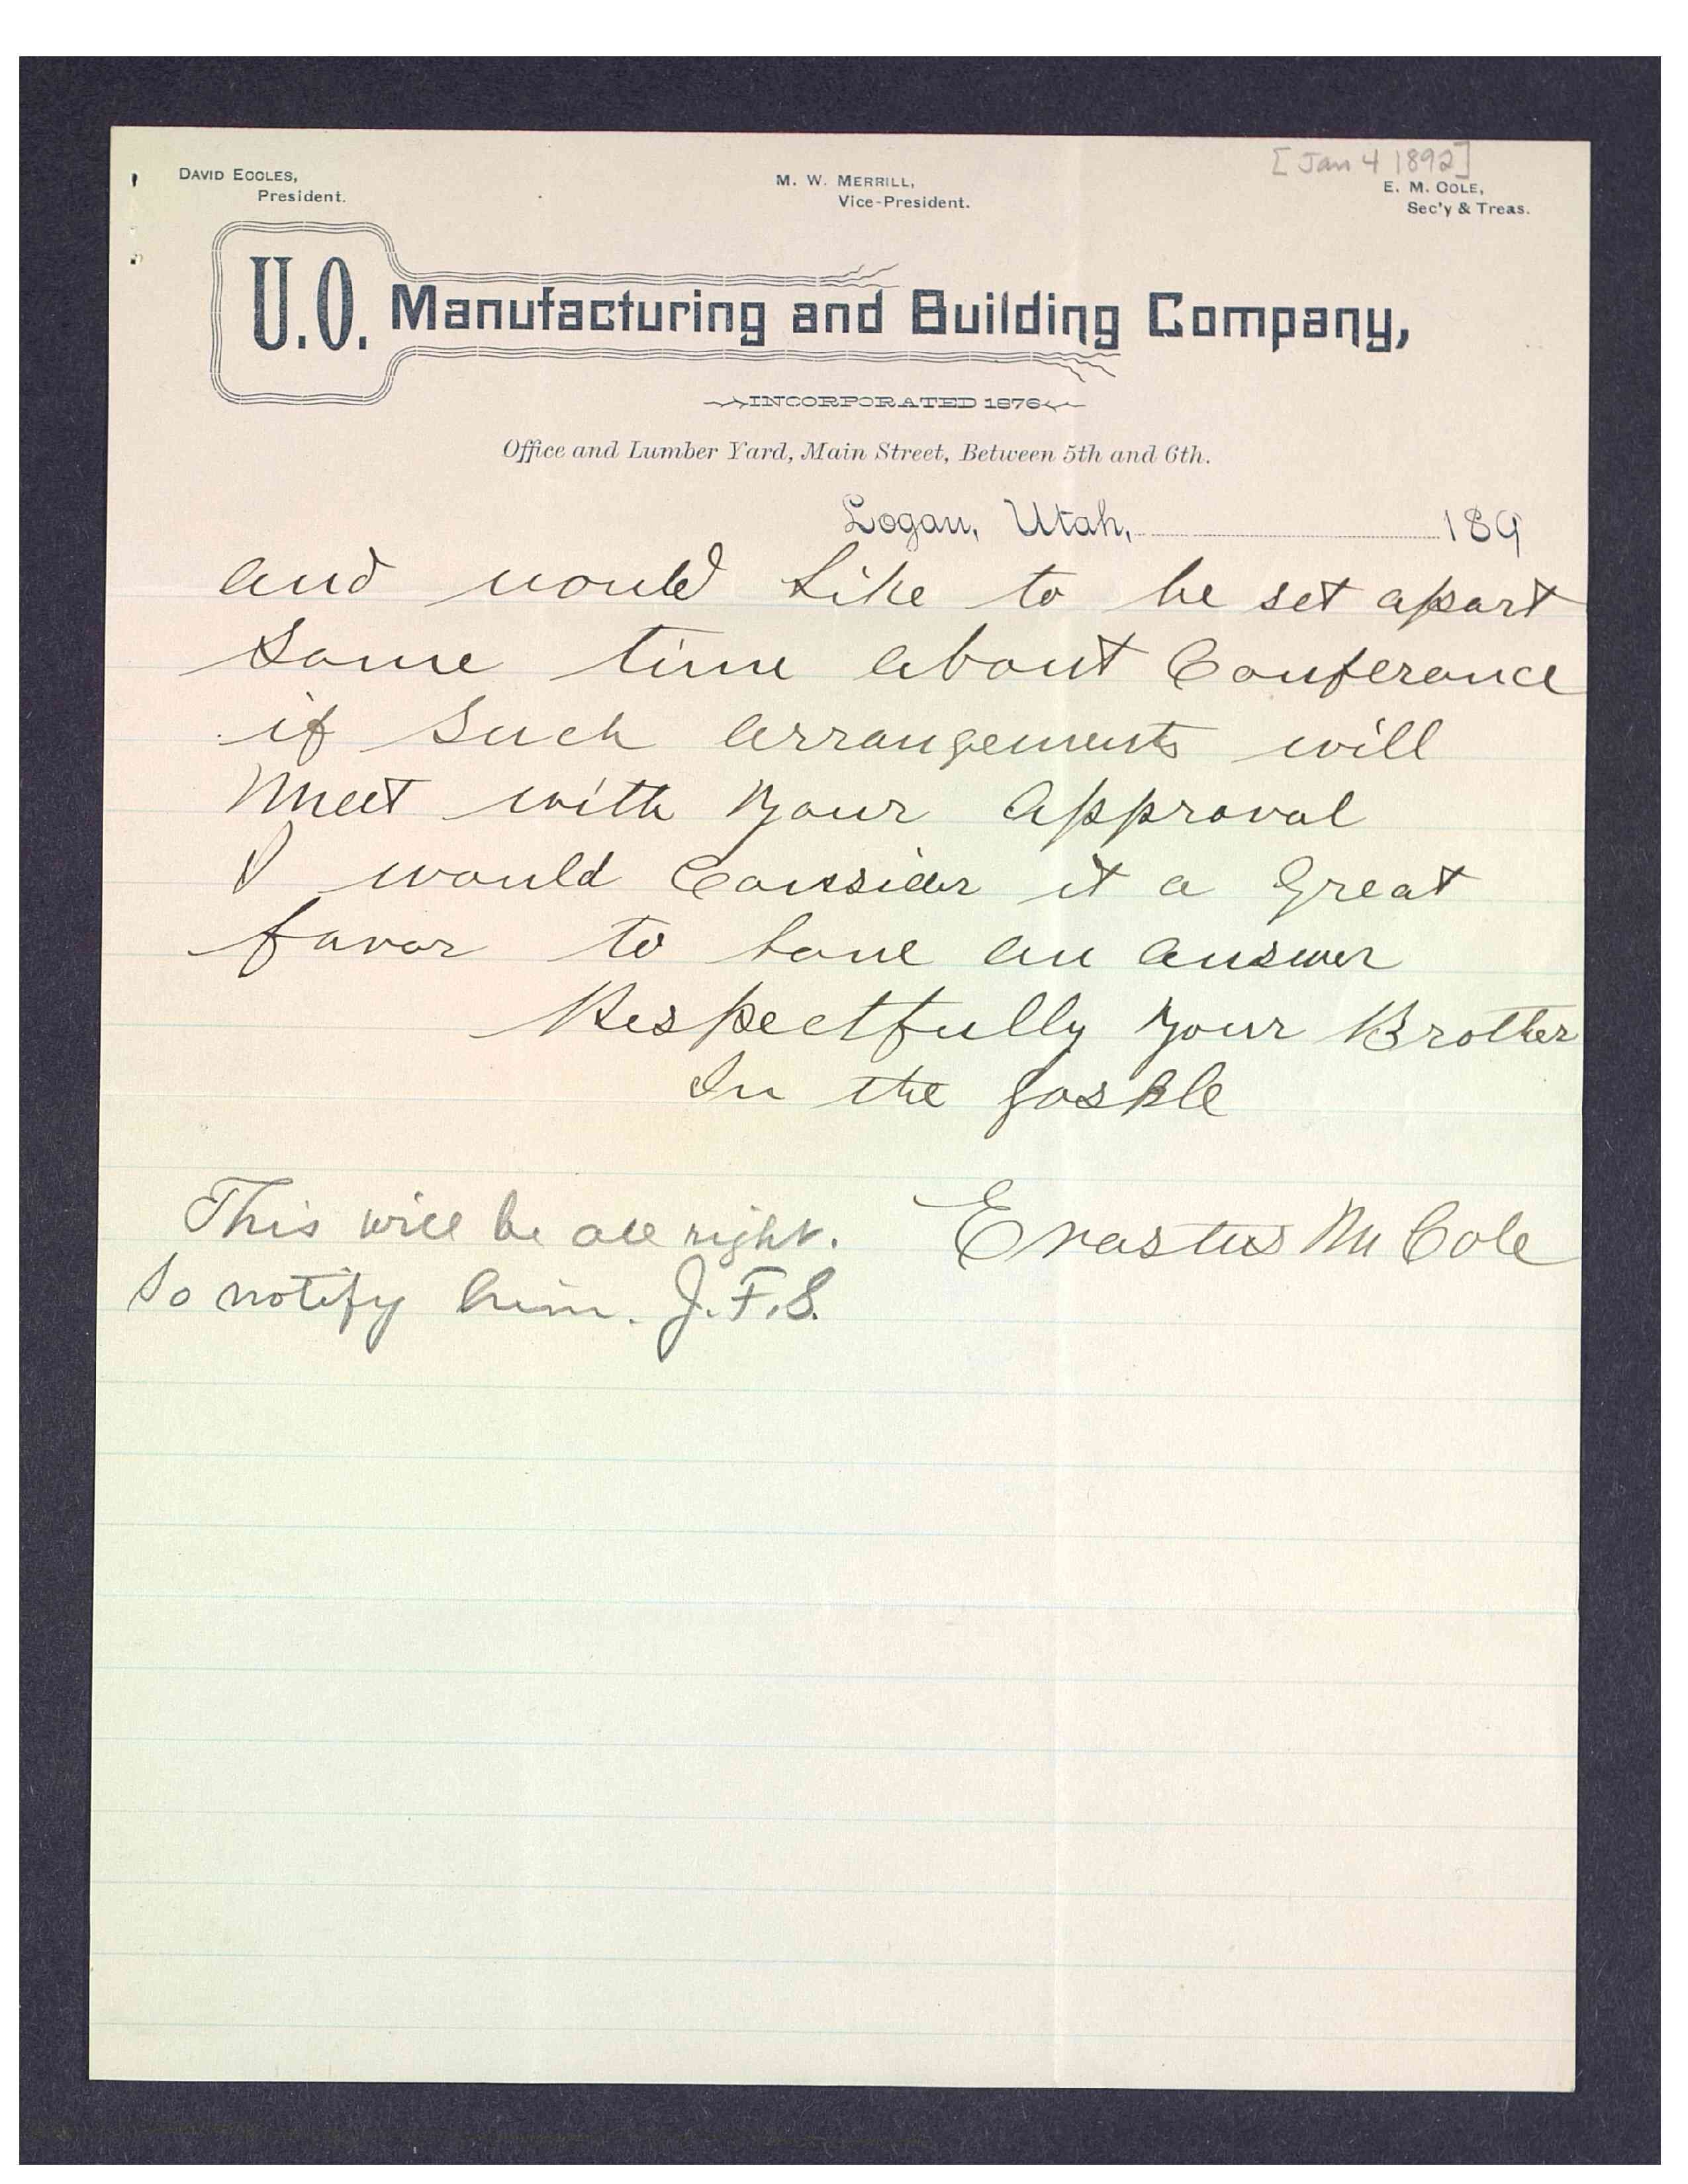 [Jan 4 1892]
DAVID ECCLES,
President.
M. W. MERRILL,
Vice-President.
E. M. COLE,
Sec'y & Treas.
U.O. Manufacturing and Building Company,
INCORPORATED 1876
Office and Lumber Yard, Main Street, Between 5th and 6th.
Logan, Utah, 189
and would like to be set apart
Some time about Conferance
if Such arrangements will
meet with your approval
I would Consider it a Great
favor to have an answer
Respectfully your Brother
In the gosple
Erastus M Cole
This will be all right.
So notify him. J.F.S.